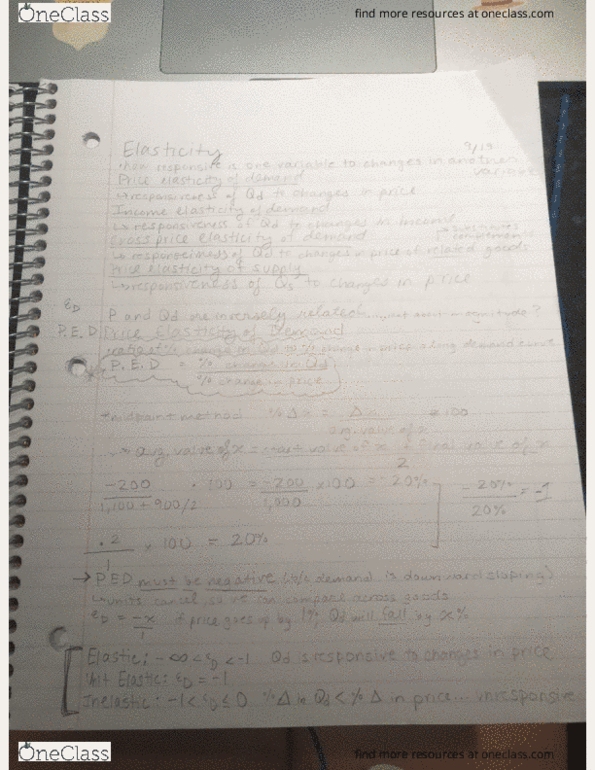 OneClass
find more resources at oneclass.com
Elasticity
3/19
how responsive is one variable to changes in another variable
Price elasticity of demand
↳ responsiveness of Qd to changes in price
Income elasticity of demand
↳ responsiveness of Qd to changes in income
substitutes
complements
Cross price elasticity of demand
↳ responsiveness of Qd to changes in price of related goods
Price elasticity of supply
↳ responsiveness of Qs to changes in price
εD
P and Qd are inversely related... what about magnitude?
P.E.D Price Elasticity of Demand
ratio of % change in Qd to % change in price along demand curve
P.E.D = % change in Qd
% change in price
midpoint method %Δx = Δx × 100
avg. value of x
avg. value of x = start value of x + final value of x
2
-200 · 100 = -200 × 100 = -20%
1,100 + 900/2 1,000
-20% = -1
20%
.2 × 100 = 20%
1
→ PED must be negative (b/c demand is downward sloping)
↳ units cancel, so we can compare across goods
εD = -x if price goes up by 1%, Qd will fall by x%
1
Elastic: -∞ < εD < -1 Qd is responsive to changes in price
Unit Elastic: εD = -1
Inelastic: -1 < εD ≤ 0 %Δ in Qd < %Δ in price... unresponsive
OneClass
find more resources at oneclass.com